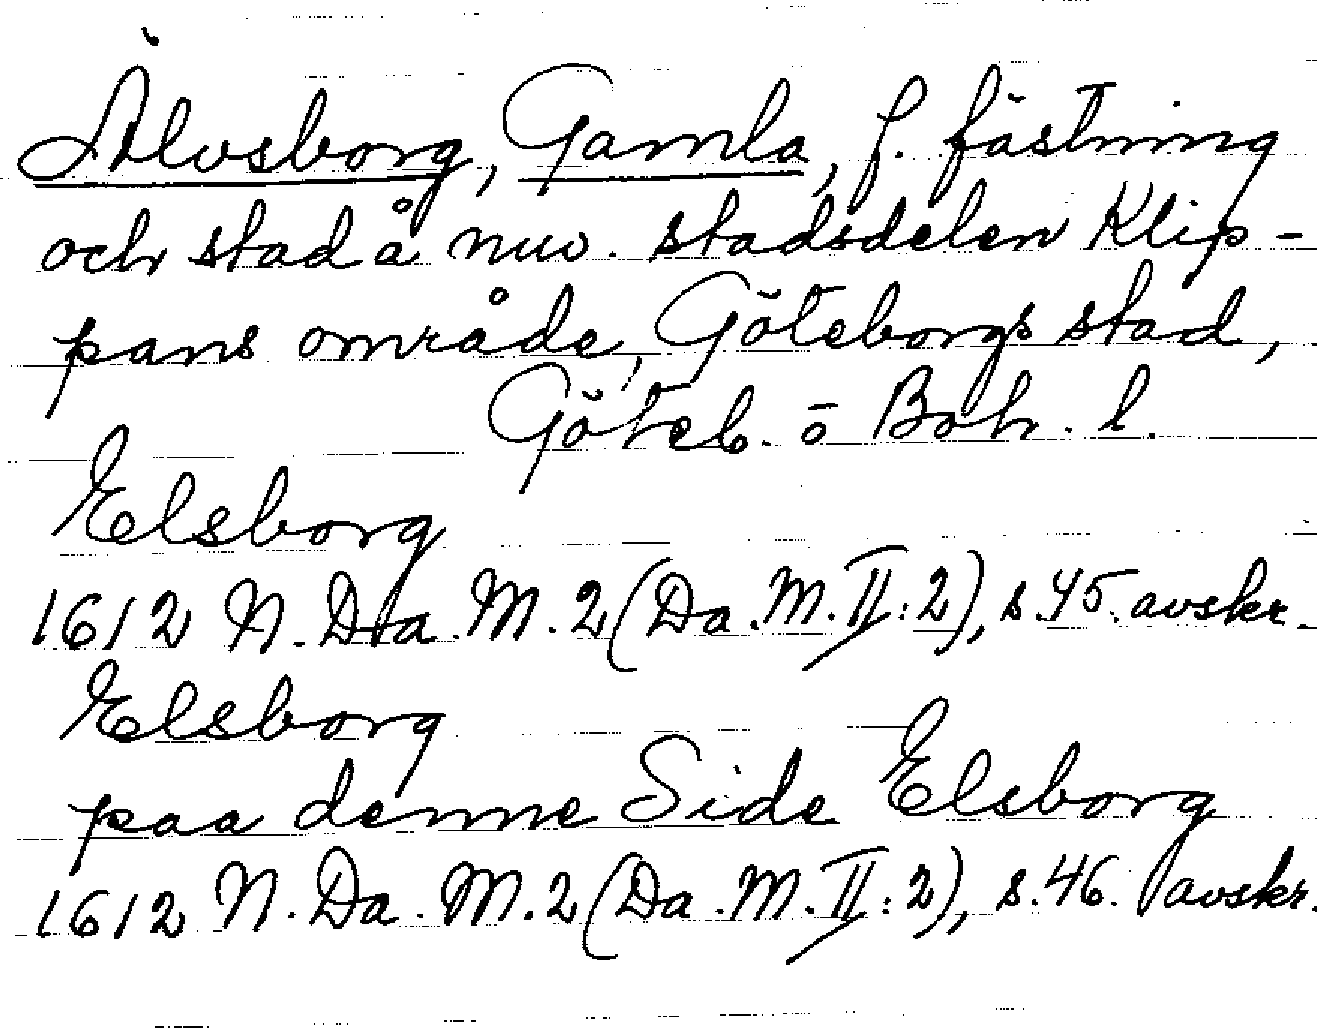 Älvsborg, Gamla, f. fästning
och stad å nuv. stadsdelen Klip-
pans område, Göteborgs stad,
Göteb. o Boh. l.
Elsborg
1612 N. Da. M. 2 (Da. M. II: 2), s. 45. avskr.
Elsborg
paa denne Side Elsborg
1612 N. Da. M. 2 (Da. M. II: 2), s. 46. avskr.